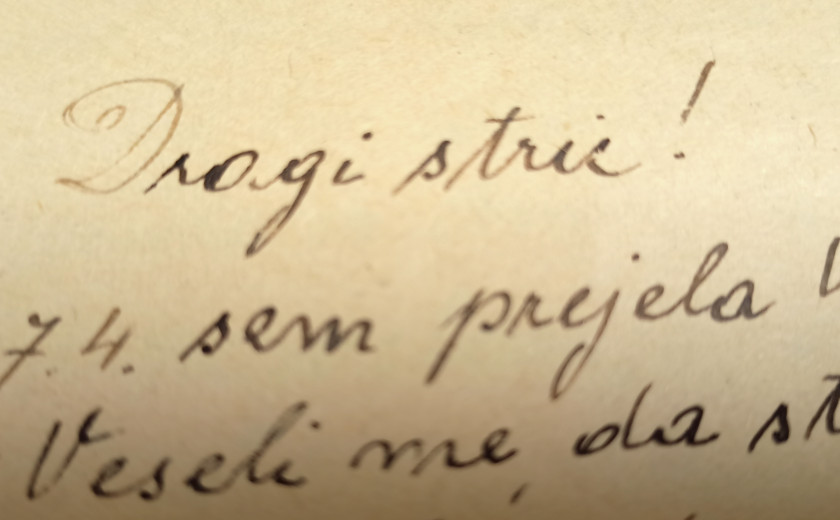 Dragi stric!
7.4. sem prejela
Veseli me, da